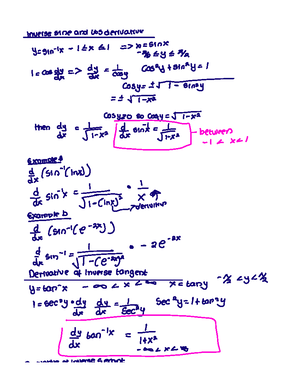 Inverse sine and cos derivative
y=sin⁻¹x -1≤x≤1 => x=sinx
-π/2 ≤ y ≤ π/2
1=cosy dy/dx => dy/dx = 1/cosy cos²y+sin²y=1
cosy=±√1-sin²y
=±√1-x²
cosy≥0 so cosy=√1-x²
then dy/dx = 1/√1-x² d/dx sin⁻¹x = 1/√1-x² - between
-1<x<1
Example a
d/dx (sin⁻¹(lnx))
d/dx sin⁻¹x = 1/√1-(lnx)² · 1/x
derivative
Example b
d/dx (sin⁻¹(e⁻²ˣ))
d/dx sin⁻¹ = 1/√1-(e⁻²ˣ)² · -2e⁻²ˣ
Derivative of inverse tangent
y=tan⁻x -∞<x<∞ x=tany -π/2<y<π/2
1=sec²y · dy/dx dy/dx = 1/sec²y sec²y=1+tan²y
dy/dx tan⁻¹x = 1/1+x²
-∞<x<∞